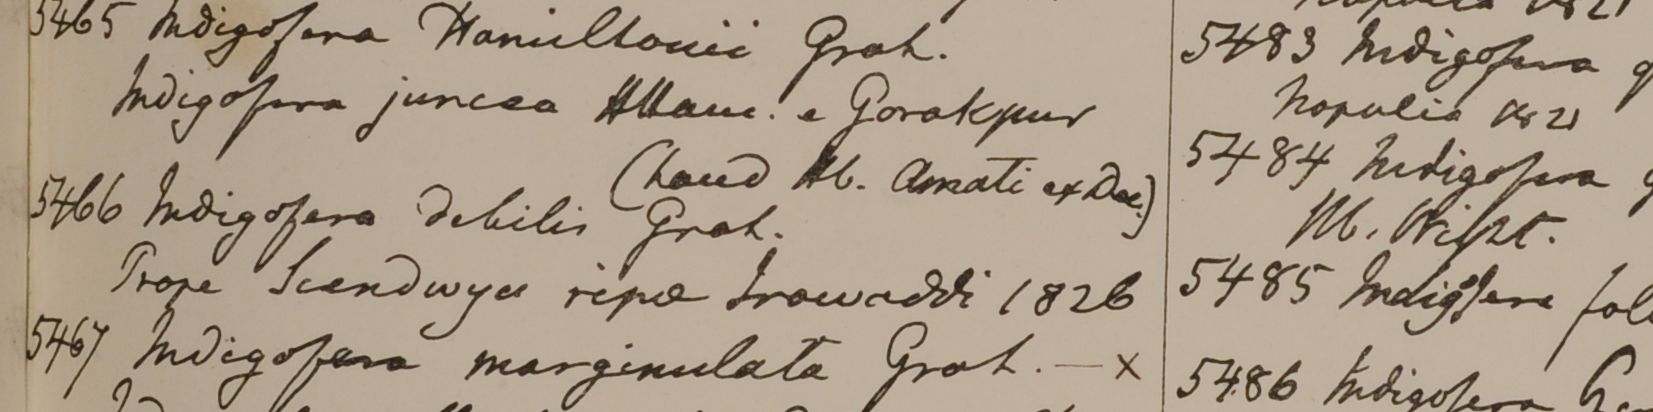 5465 Indigofera Hamiltonii Grah.
Indigofera juncea HHam. e Gorakpur
(haud Hb. Amati ex Dec.)
5466 Indigofera debilis Grah.
Prope Seendwya ripa Irawaddi 1826
5467 Indigofera marginulata Grah. — x
Napulia 1821
5483 Indigofera
Napulia 1821
5484 Indigofera
Hb. Wight.
5485 Indigofera
5486 Indigofera